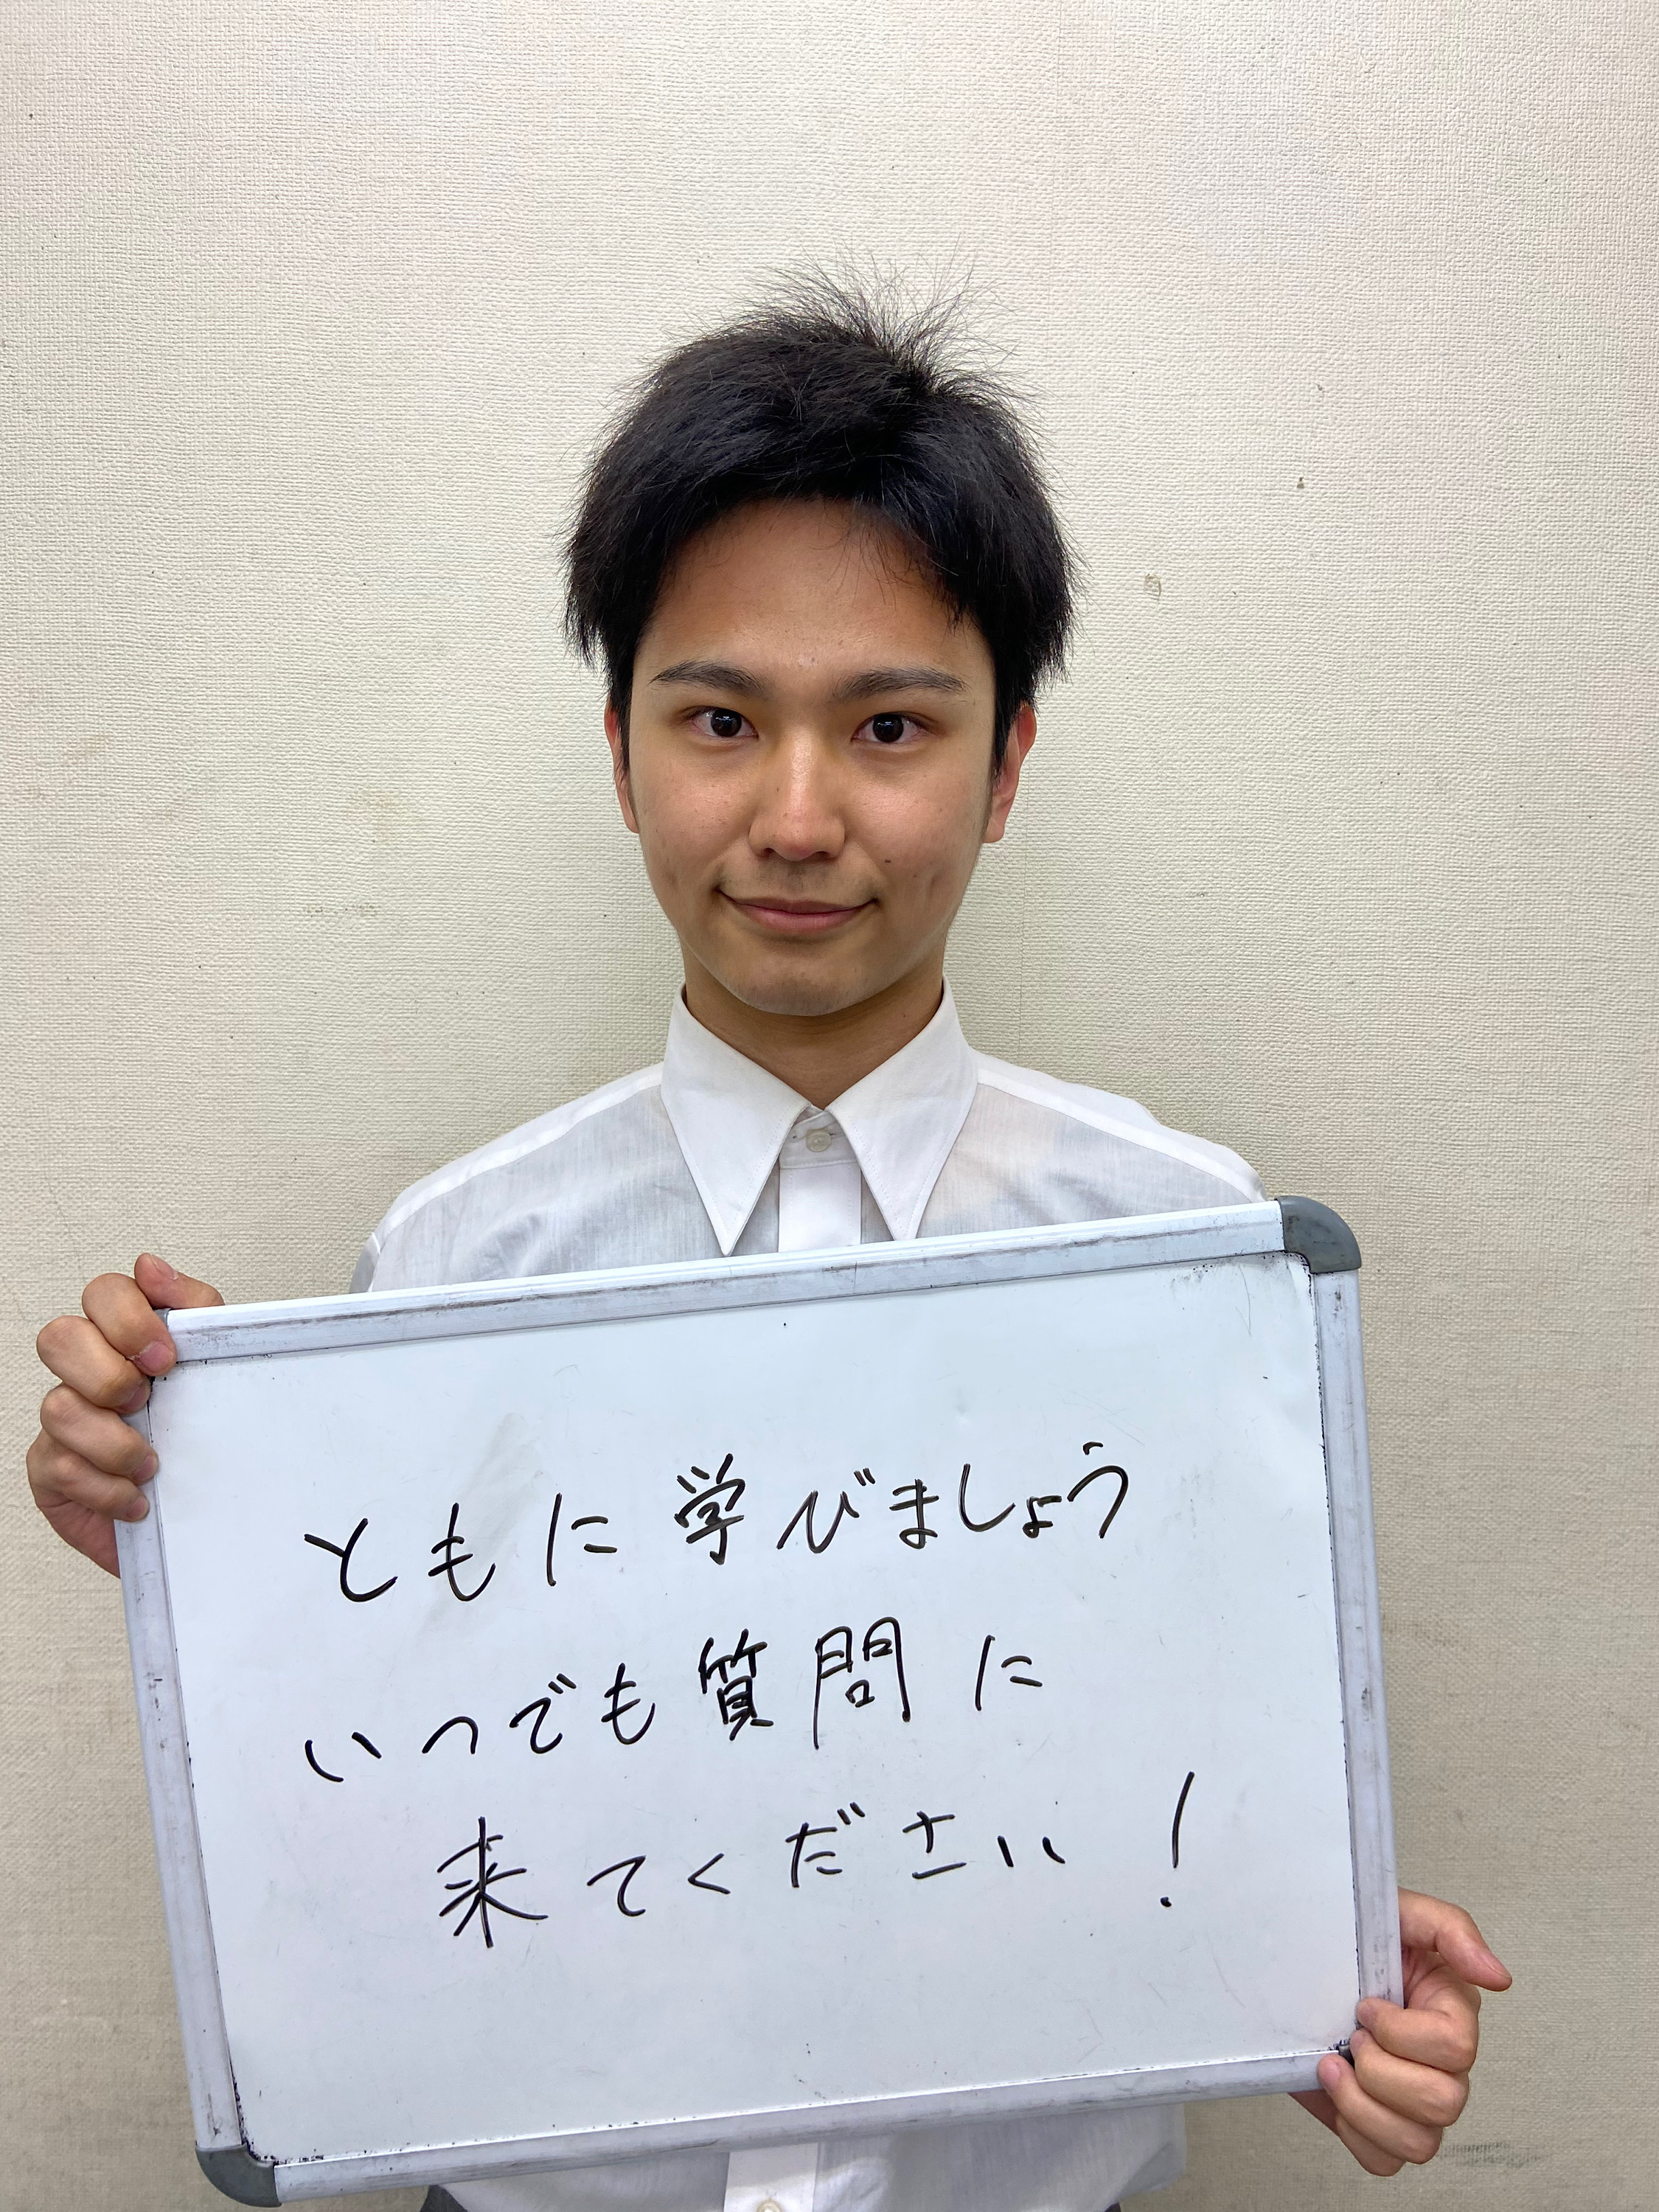 ともに学びましょう
いつでも質問に
来てください!